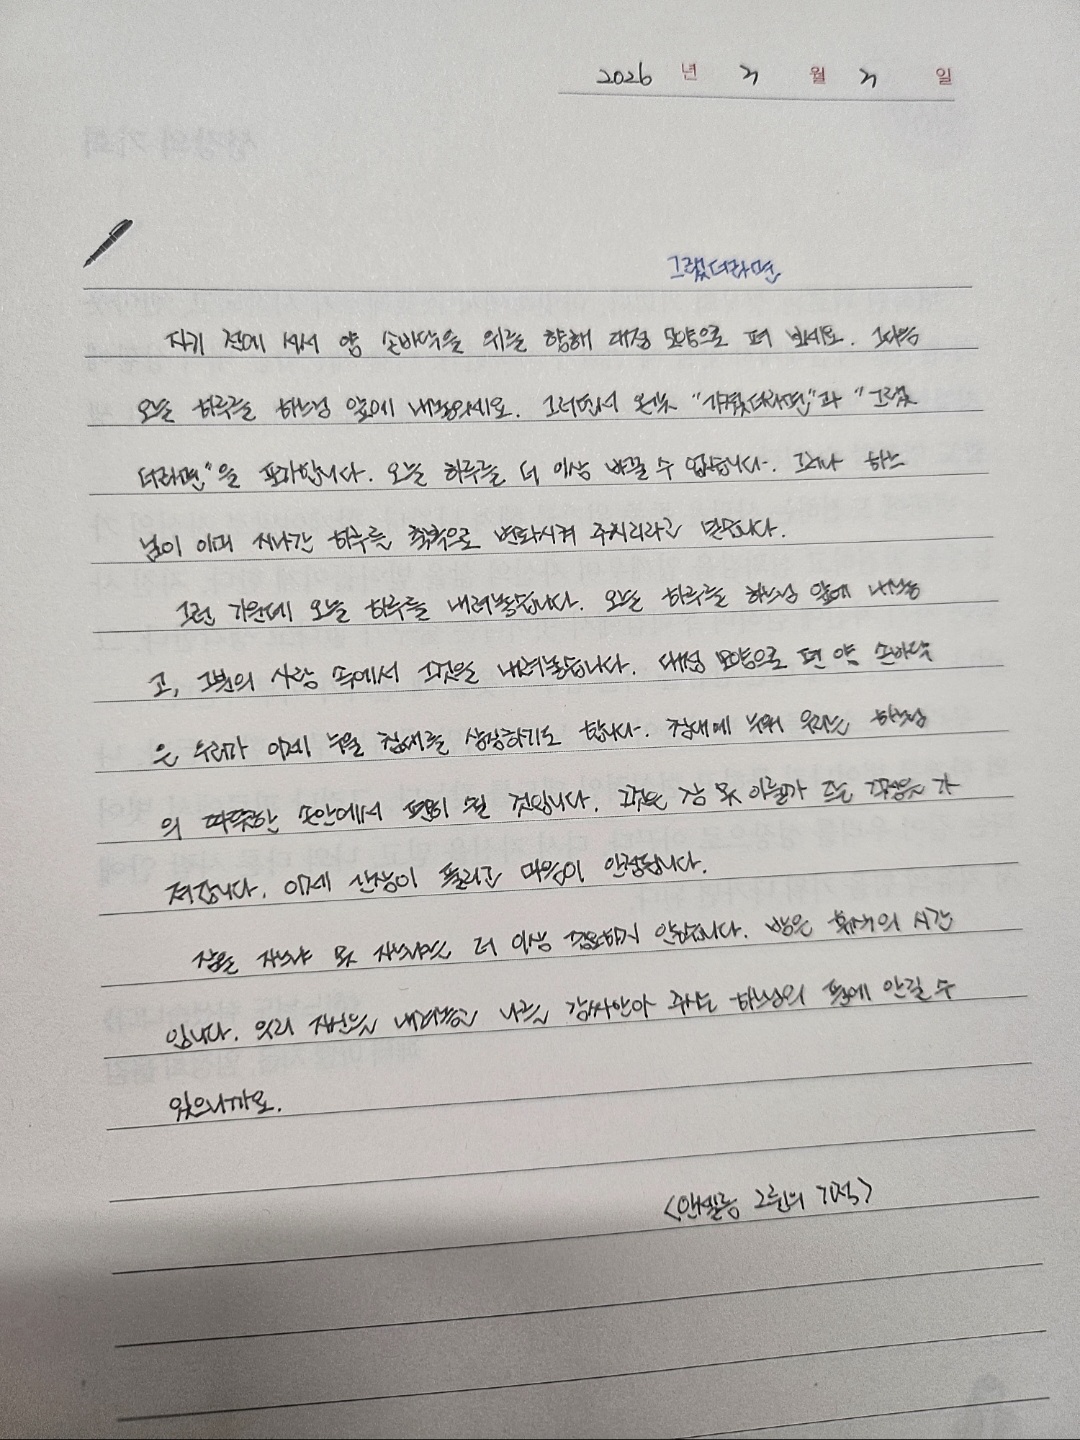 2026 년 3 월 3 일
그랬더라면
자기 전에 서서 양 손바닥을 위를 향해 대접 모양으로 펴 보세요. 그다음
오늘 하루를 하느님 앞에 내놓으세요. 그러면서 온갖 "가졌더라면"과 "그랬
더라면"을 포기합니다. 오늘 하루를 더 이상 바꿀 수 없습니다. 그러나 하느
님이 이미 지나간 하루를 축복으로 변화시켜 주시리라고 믿습니다.
그런 가운데 오늘 하루를 내려놓습니다. 오늘 하루를 하느님 앞에 내놓
고, 그분의 사랑 속에서 그것을 내려놓습니다. 대접 모양으로 편 양 손바닥
은 우리가 이제 누울 침대를 상징하기도 합니다. 침대에 누워 우리는 하느님
의 따뜻한 손안에서 편히 쉴 것입니다. 그것은 잠 못 이룰가 드는 걱정을 가
져갑니다. 이제 긴장이 풀리고 마음이 안정됩니다.
잠을 자느냐 못 자느냐는 더 이상 중요하지 않습니다. 밤은 휴식의 시간
입니다. 우리 자신을 내려놓고 나를 감싸안아 주시는 하느님의 품에 안길 수
있으니까요.
<안셀름 그륀의 기적>